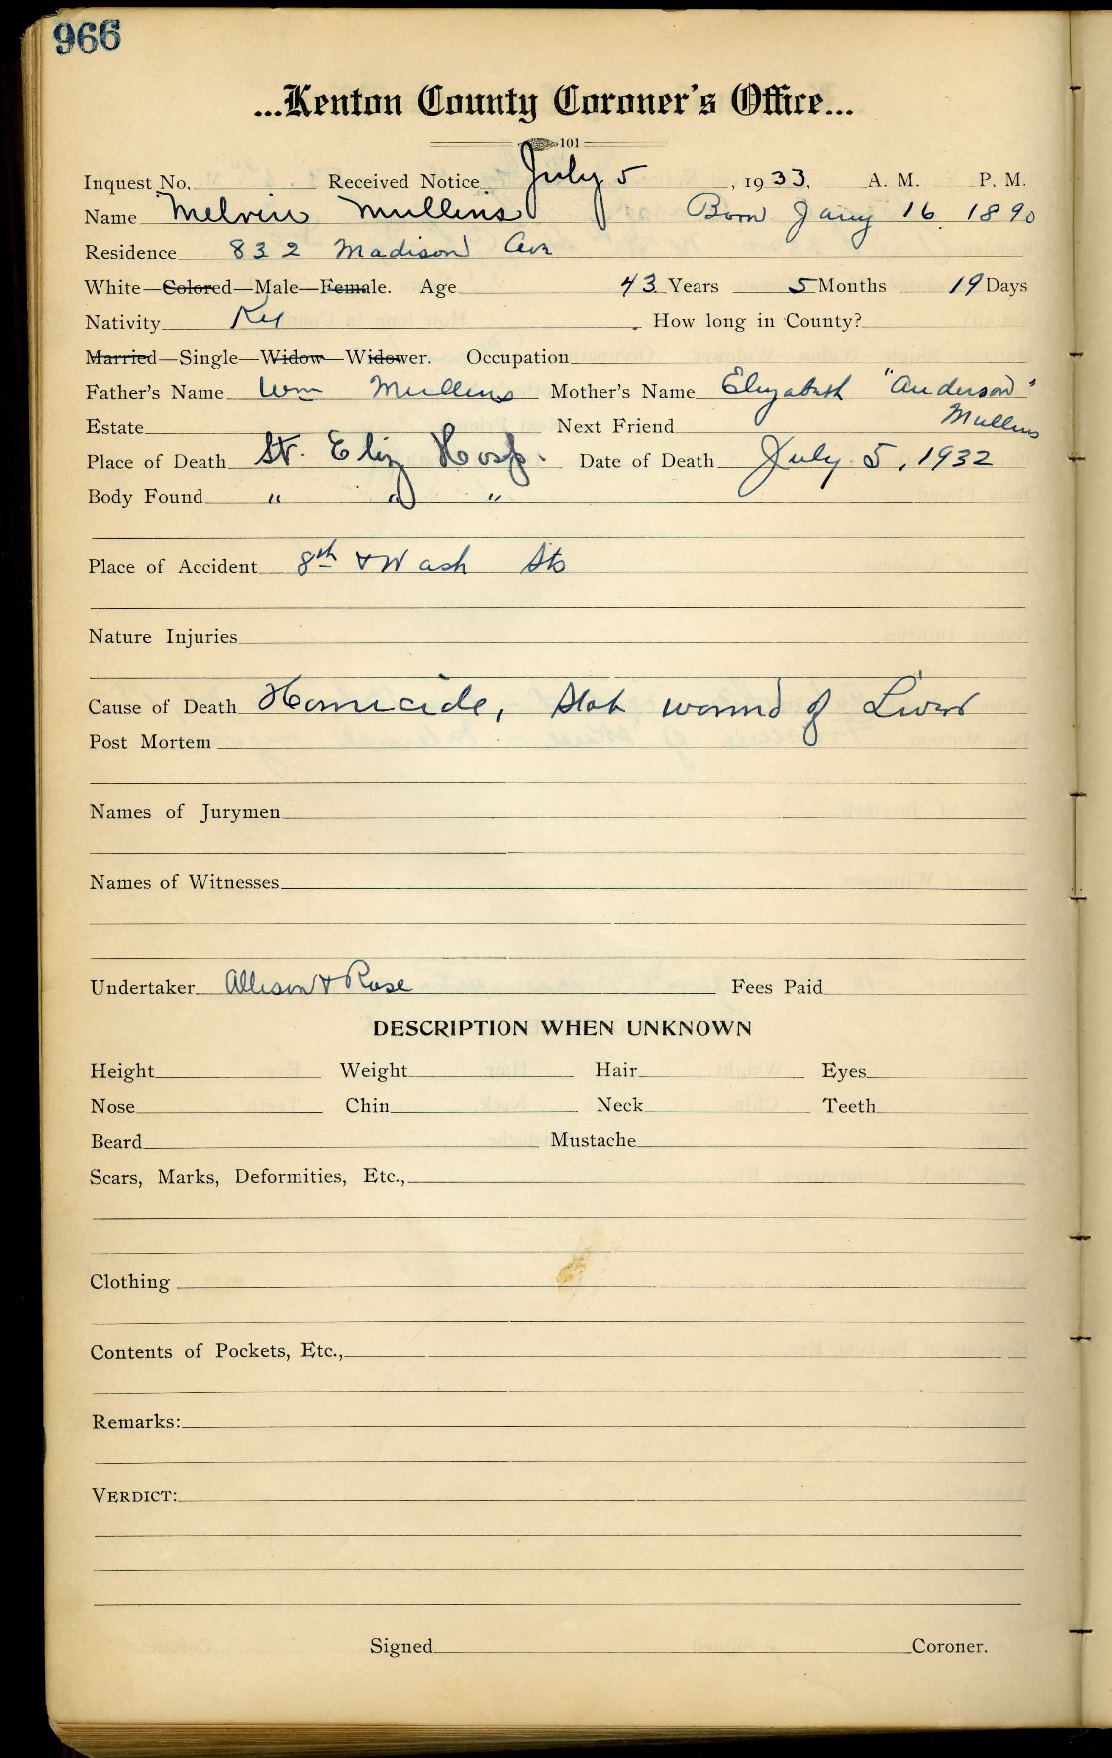 966
...Kenton County Coroner's Office...
101
Inquest No. Received Notice July 5, 1933, A. M. P. M.
Name Melvin Mullins Born Jany 16 1890
Residence 832 Madison Ave
White—Colored—Male—Female. Age 43 Years 5 Months 19 Days
Nativity Ky How long in County?
Married—Single—Widow—Widower. Occupation
Father's Name Wm Mullins Mother's Name Elizabeth "Anderson"
Mullins
Estate Next Friend
Place of Death St. Eliz Hosp. Date of Death July 5, 1932
Body Found " " "
Place of Accident 8th & Wash Sts
Nature Injuries
Cause of Death Homicide, Stab wound of Liver
Post Mortem
Names of Jurymen
Names of Witnesses
Undertaker Allison & Rose Fees Paid
DESCRIPTION WHEN UNKNOWN
Height Weight Hair Eyes
Nose Chin Neck Teeth
Beard Mustache
Scars, Marks, Deformities, Etc.,
Clothing
Contents of Pockets, Etc.,
Remarks:
VERDICT:
Signed Coroner.